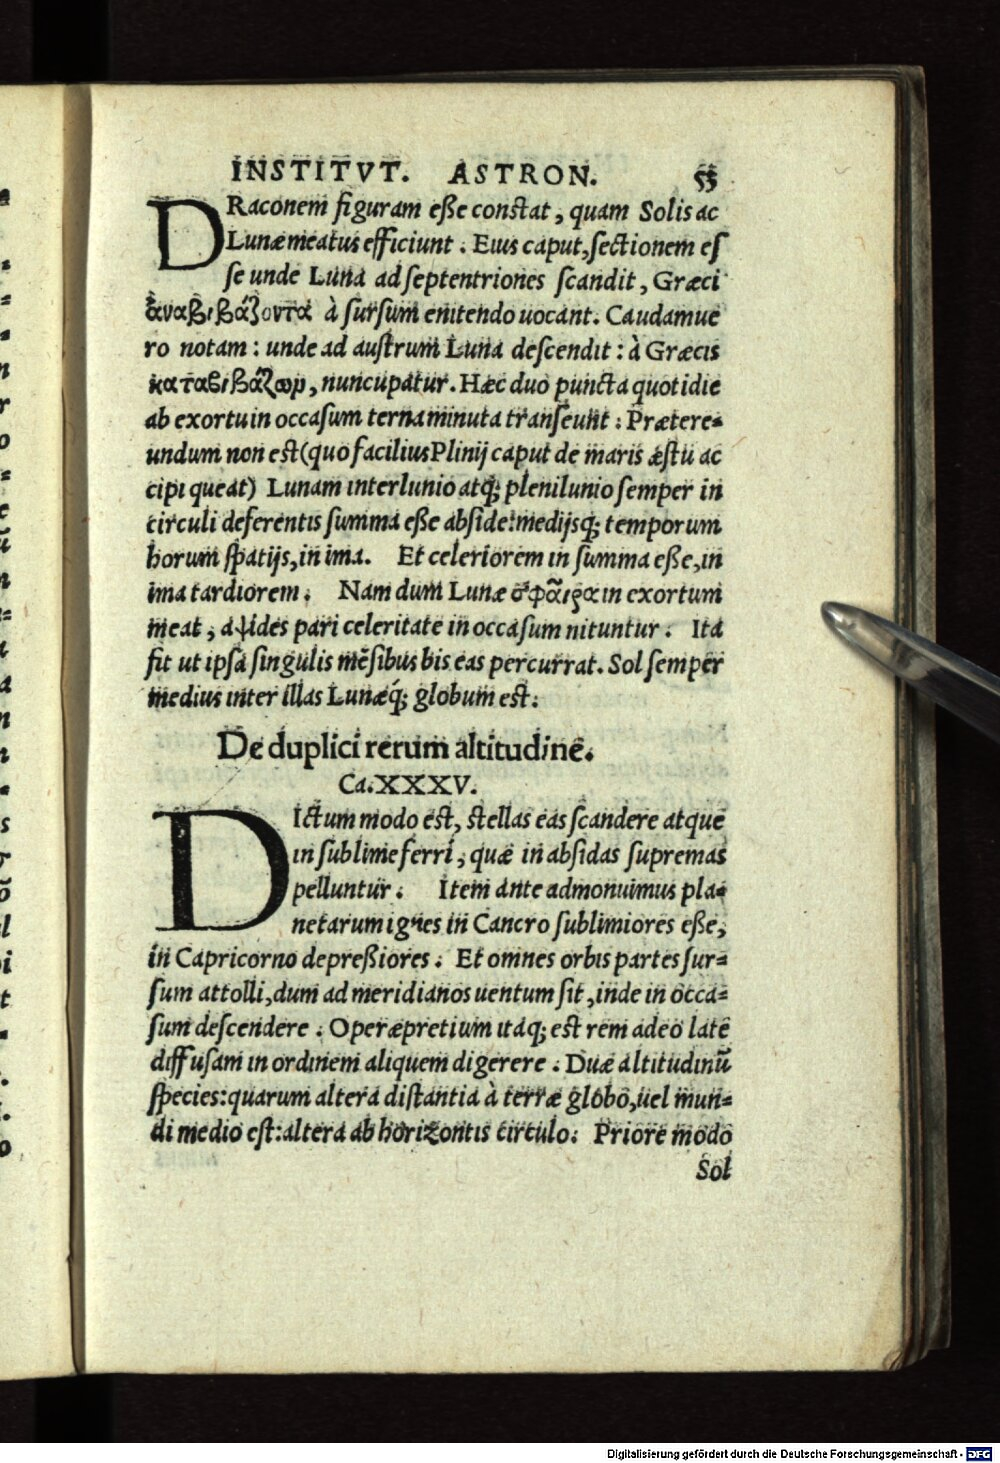 INSTITVT. ASTRON. 55
DRaconem figuram eſſe conſtat, quam Solis ac
Lunæ meatus efficiunt. Eius caput, ſectionem eſ
ſe unde Luna ad ſeptentriones ſcandit, Græci
ἀναβιβάζοντα à ſurſum enitendo uocant. Caudam ue
ro notam: unde ad auſtrum Luna deſcendit: à Græcis
καταβιβάζωμ, nuncupatur. Hæc duo puncta quotidie
ab exortu in occaſum terna minuta tranſeunt: Prætere=
undum non eſt (quo facilius Plinij caput de maris æſtu ac
cipi queat) Lunam interlunio atq; plenilunio ſemper in
circuli deferentis ſumma eſſe abſide: medijsq; temporum
horum ſpatijs, in ima. Et celeriorem in ſumma eſſe, in
ima tardiorem. Nam dum Lunæ σφαῖρα in exortum
meat, aψides pari celeritate in occaſum nituntur. Ita
fit ut ipſa ſingulis mēſibus bis eas percurrat. Sol ſemper
medius inter illas Lunæq́; globum eſt.
De duplici rerum altitudine.
Ca. XXXV.
DIctum modo eſt, ſtellas eas ſcandere atque
in ſublime ferri, quæ in abſidas ſupremas
pelluntur. Item ante admonuimus pla=
netarum ignes in Cancro ſublimiores eſſe,
in Capricorno depreßiores. Et omnes orbis partes ſur=
ſum attolli, dum ad meridianos uentum ſit, inde in occa=
ſum deſcendere. Operæpretium itaq; eſt rem adeo late
diffuſam in ordinem aliquem digerere. Duæ altitudinū
ſpecies: quarum altera diſtantia à terræ globo, uel mun=
di medio eſt: altera ab horizontis circulo. Priore modo
Sol
Digitalisierung gefördert durch die Deutsche Forschungsgemeinschaft - DFG